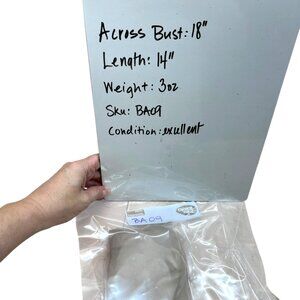 Across Bust: 18"
Length: 14"
Weight: 3oz
Sku: BA09
Condition: excellent
BA09